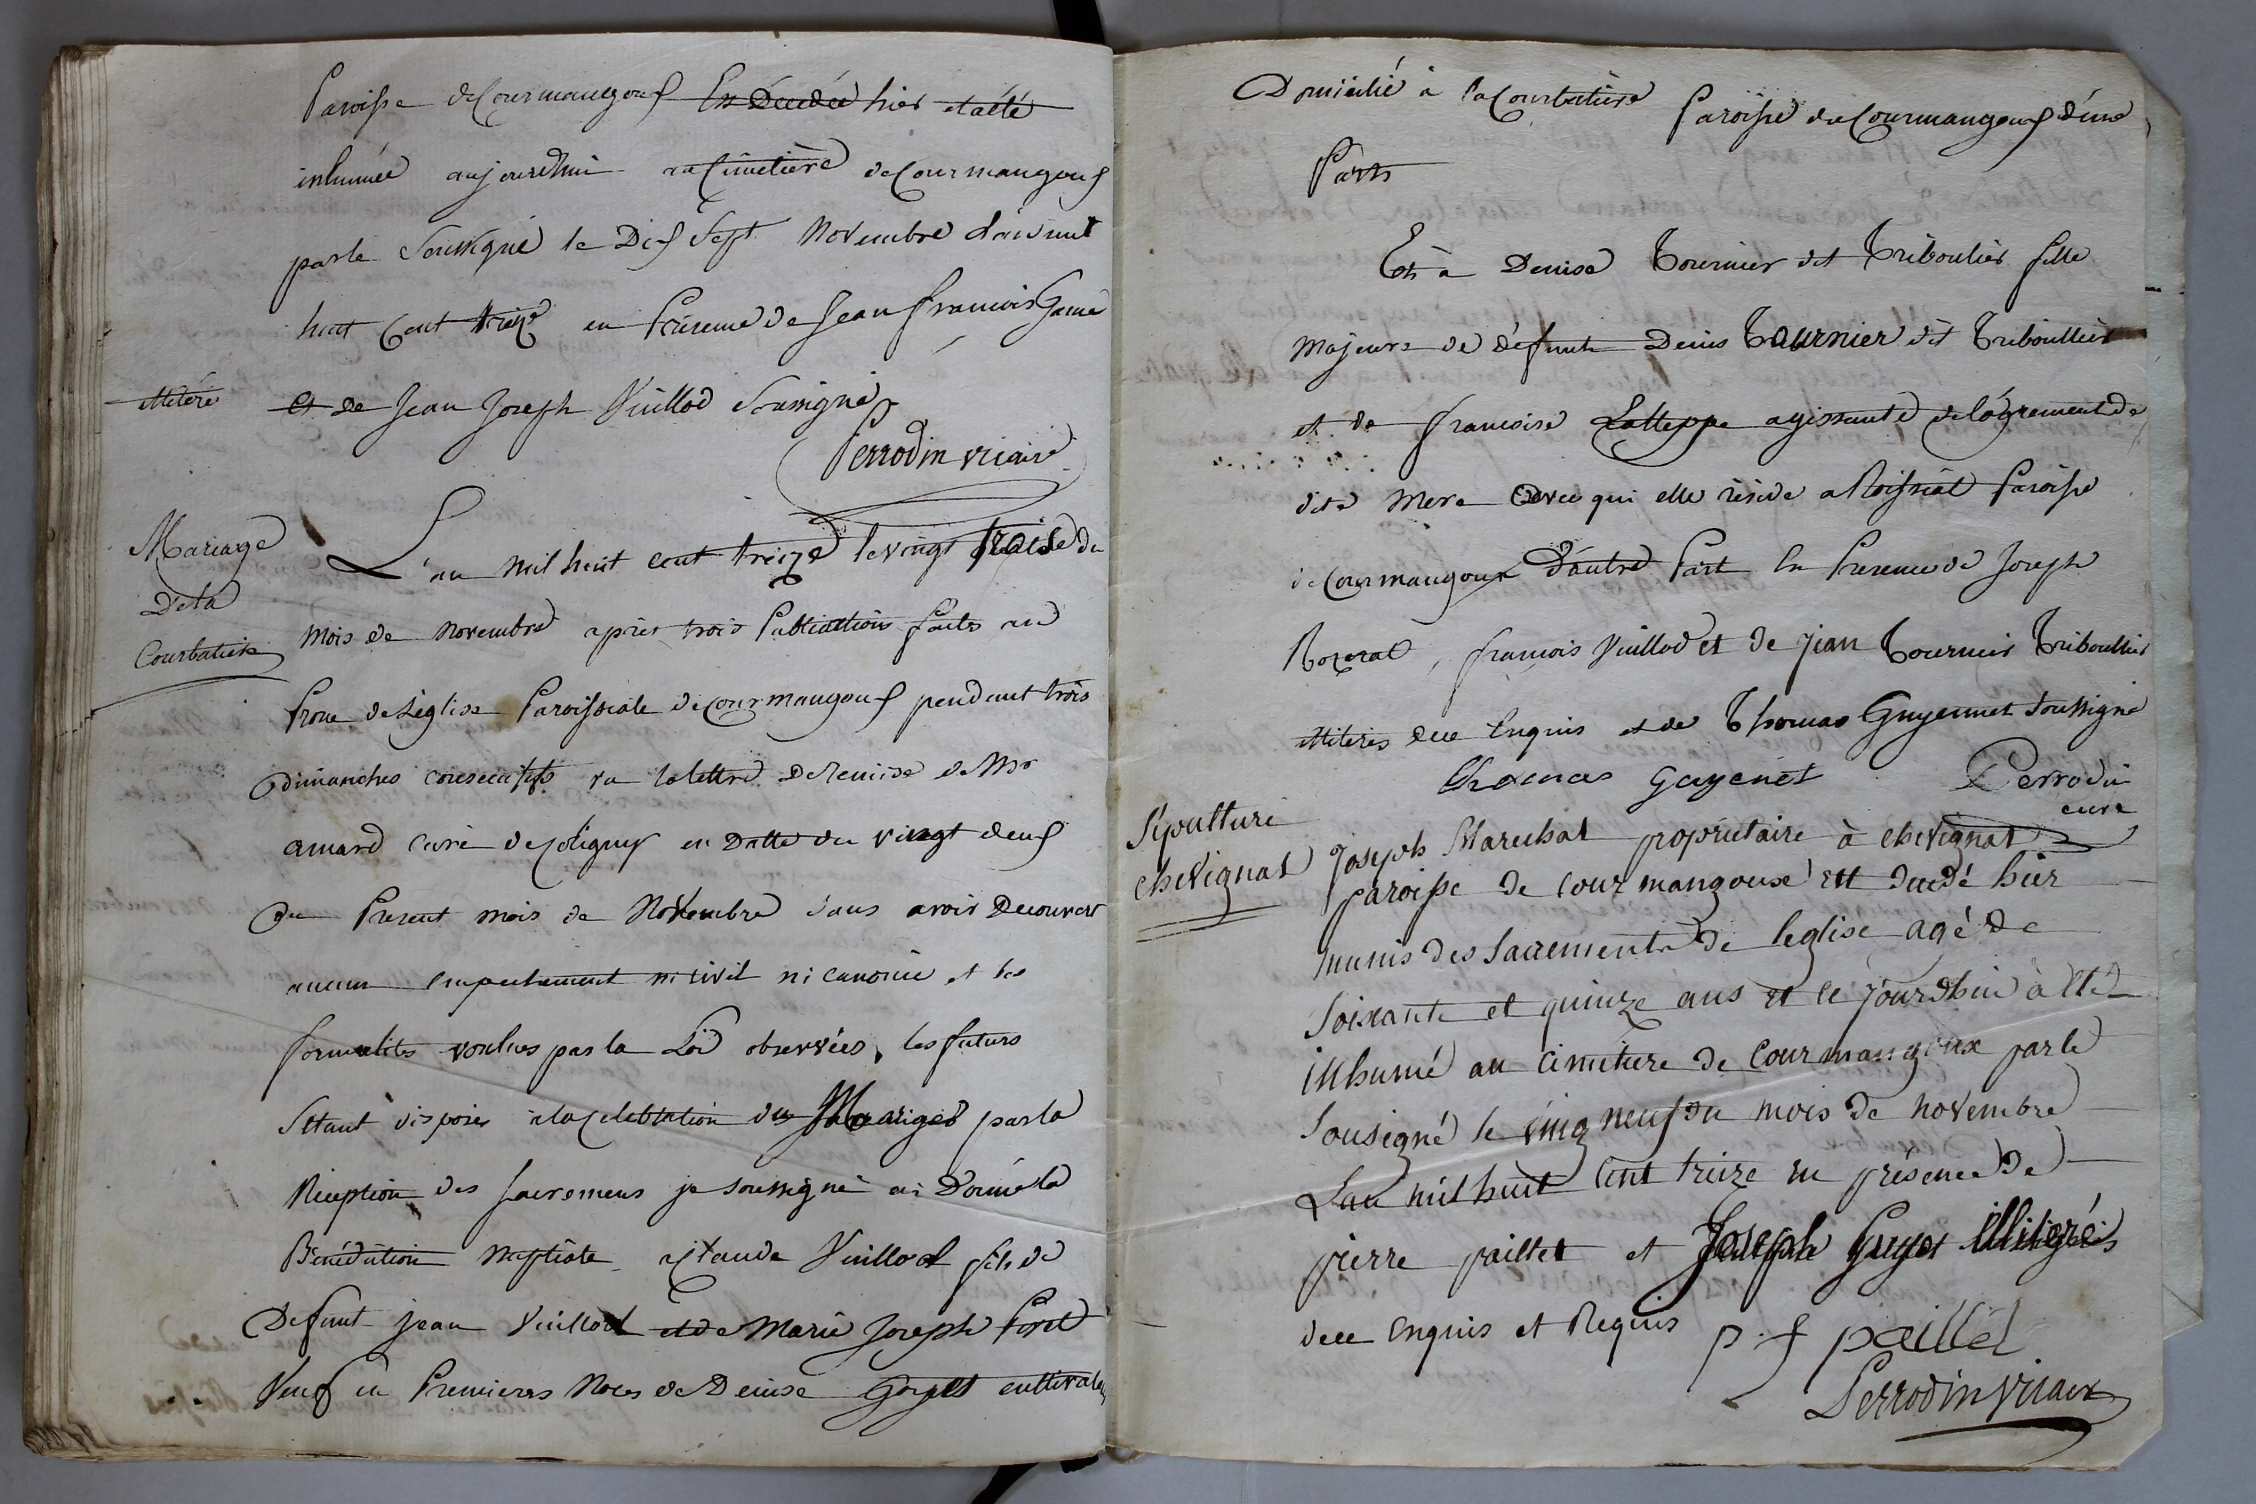 Paroisse de Courmangouf Est Décedée hier et a été
inhumée aujourdhui au Cimetière de Courmangouf
par le Soussigné le Dif Sept Novembre l'an mil
huit Cent treize en Présence de Jean François
illiteré et de Jean Joseph Vuillod Soussigné
Perrodin vicaire
Mariage
De la
Courbatière
L'an mil huit cent treize le vingt trois du
mois de Novembre après trois Publications faites au
Prone de L'église Paroissiale de Courmangouf pendant trois
dimanches consecutifs vu la lettre De remise de Mr
amard curé de Coligny en Datte du vingt deuf
du Present mois de Novembre sans avoir Decouvert
aucun empechement ni civil ni canonic et les
formalités voulues par la Loi observées, les futurs
s'étant disposés à la Celebration du Mariage par la
Réception des sacremens je soussigné ai Donné la
Bénédiction Nuptiale a Claude Vuillod fils de
Defunt jean Vuillod et de Marie Joseph Poret
Veuf en Premieres Noces de Denise Goyet cultivateur
Domicilié à la Courbatière Paroisse de Courmangouf d'une
Part
Et à Denise Tournier dit Triboulier fille
Majeure de défunt Denis Tournier dit Triboullier
et de francoise Latteppe agissante de l'agrement de
dite Mere avec qui elle réside a Roissiat Paroisse
de Courmangoux D'autre Part En Presence de Joseph
Rozerat, françois Vuillod et de Jean Tournier Triboullier
illiteres de ce Enquis et de Thomas Guyennet soussigné
Thomas Gayenet Perrodin
cure
Sépulture
chevignat
Joseph Marechal propriétaire à chevignat
paroisse de courmangoux est decedé hier
munis des sacrements de leglise agé de
soixante et quinze ans et ce jourdhui a été
inhumé au cimitiere de Courmangoux par le
sousigné le ving neuf du mois de novembre
Lan mil huit cent treize en présence de
pierre paillet et Joseph Guyot illiterés
de ce Enquis et Requis p. f paillet
Perrodin vicaire